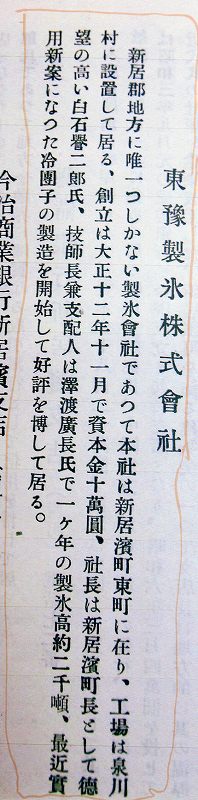 東豫製氷株式會社
新居郡地方に唯一つしかない製氷會社であつて本社は新居濱町東町に在り、工場は泉川
村に設置して居る、創立は大正十二年十一月で資本金十萬圓、社長は新居濱町長として德
望の高い白石譽二郎氏、技師長兼支配人は澤渡廣長氏で一ヶ年の製氷高約二千噸、最近實
用新案になつた冷團子の製造を開始して好評を博して居る。
今治商業銀行新居濱支店